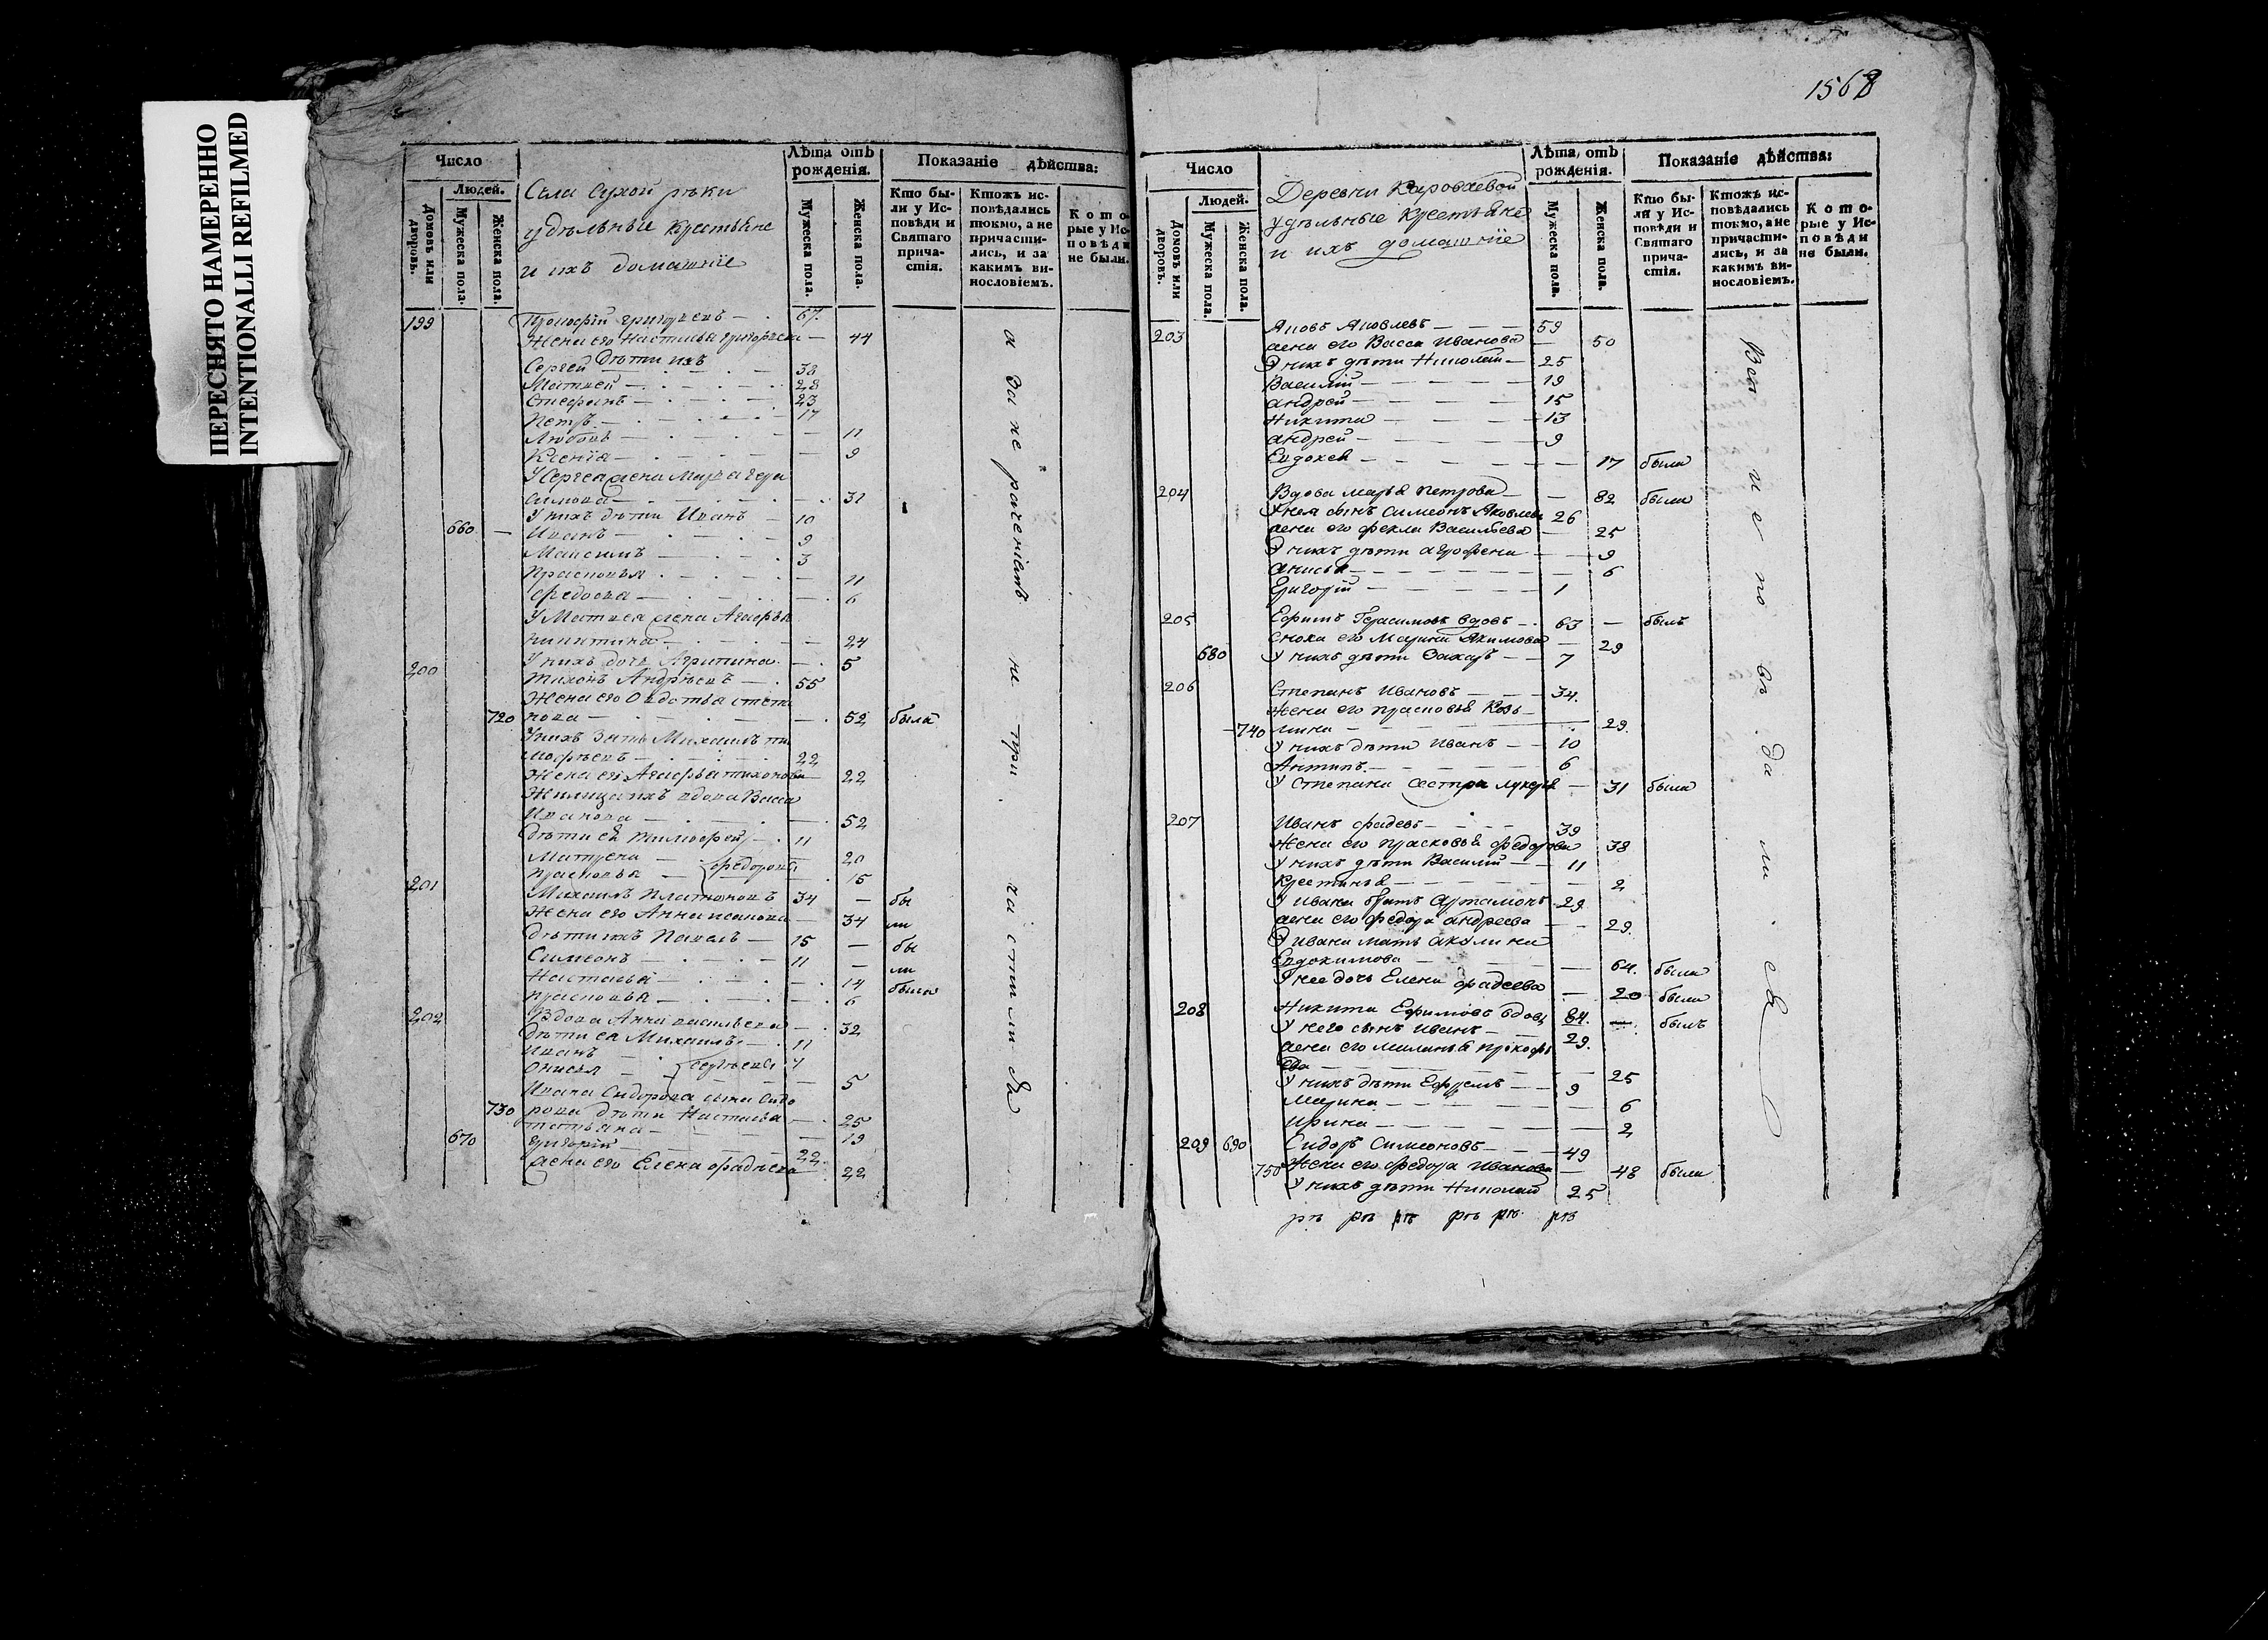 ПЕРЕСНЯТО НАМЕРЕННО
INTENTIONALLI REFILMED
Число
Людей.
Домовъ или дворовъ.
Мужеска пола.
Женска пола.
Села Сухой рѣки
удѣльные крестьяне
и ихъ домашніе
Лѣта отъ рожденія.
Мужеска пола.
Женска пола.
Показаніе дѣйства:
Кто бы-
ли у Ис-
повѣди и
Святаго
прича-
стія.
Ктожъ ис-
повѣдались
токмо, а не
причасти-
лись, и за
какимъ ви-
нословіемъ.
Кото-
рые у Ис-
повѣди
не были.
199 григорьевъ 67.
Жена его Настасья григорьева 44
Дѣти ихъ
Сергей 38
Матвей 28
Стефанъ 23
Петръ 17
Любовь 11
Ксенія 9
У Сергея жена Марья гера
симова 31
У нихъ дѣти Иванъ 10
660 Иванъ 9
Максимъ 3
Прасковья 11
Федосья 6
У Матвея жена Агафья
никитина 24
У нихъ дочь Агрипина 5
200 Тихонъ Андрѣевъ 55
Жена его Овдотья степа
720 нова 52 была
У нихъ зять Михаилъ ти
мофѣевъ 22
Жена его Агафья тихонова 22
Жилица ихъ вдова Васса
Иванова 52
Дѣти ея Тимофей 11
Матрена 20
Прасковья федоровы 15
201 Михаилъ Платоновъ 34 — бы
Жена его Анна исакова 34 ли
Дѣти ихъ Павелъ 15 — бы
Симеонъ 11 — ли
Настасья 14 была
Прасковья 6
202 Вдова Анна васильева 32
Дѣти ея Михаилъ 11
Иванъ 4
Онисья сергѣевы 5
Ивана Сидорова сына Сидо
730 рова дѣти Настасья 25
татьяна 19
670 григорій 22
жена его Елена фадѣева 22
а за не раченіемъ не при ча сти ли ся
1568
Число
Людей.
Домовъ или дворовъ.
Мужеска пола.
Женска пола.
Деревни Короваевой
удѣльные крестьяне
и ихъ домашніе
Лѣта отъ рожденія.
Мужеска пола.
Женска пола.
Показаніе дѣйства:
Кто бы-
ли у Ис-
повѣди и
Святаго
прича-
стія.
Ктожъ ис-
повѣдались
токмо, а не
причасти-
лись, и за
какимъ ви-
нословіемъ.
Кото-
рые у Ис-
повѣди
не были.
203 Яковъ Яковлевъ 59
жена его Васса Иванова 50
У нихъ дѣти Николай 25
Василій 19
андрей 15
Никита 13
андрей 9
Евдокея 17 была
204 Вдова марья петрова 82 была
У нея сынъ Симеонъ Яковлевъ 26
жена его фекла Васильева 25
У нихъ дѣти агрофена 9
анисья 6
Григорій 1
205 Ефимъ Герасимовъ вдовъ 63 — былъ
сноха его Марина Якимова 29
680 У нихъ дѣти Захаръ 7
206 Степанъ Ивановъ 34.
Жена его прасковья Козь
740 мина 29.
У нихъ дѣти Иванъ 10
Антипъ 6
У Степана сестра лукерья 31 была
207 Иванъ фадевъ 39
Жена его прасковья федорова 38
У нихъ дѣти Василій 11
Крестинья 2
У ивана братъ Артамонъ 29
жена его федора андреева 29.
У ивана мать акулина
Евдокимова 64. была
У нее дочь Елена фадеева 20 была
208 Никита Ефимовъ вдовъ 64. былъ
У него сынъ иванъ 29.
жена его миланья прокофь
ева 25
У нихъ дѣти Ефремъ 9
Марина 6
Ирина 2
209 690 Сидоръ Симеоновъ 49
750 Жена его федора Иванова 48 была
У нихъ дѣти Николай 25
Вси ис по вѣ да ли ся
рѣ рѣ рѣ рѣ рѣ рѣ